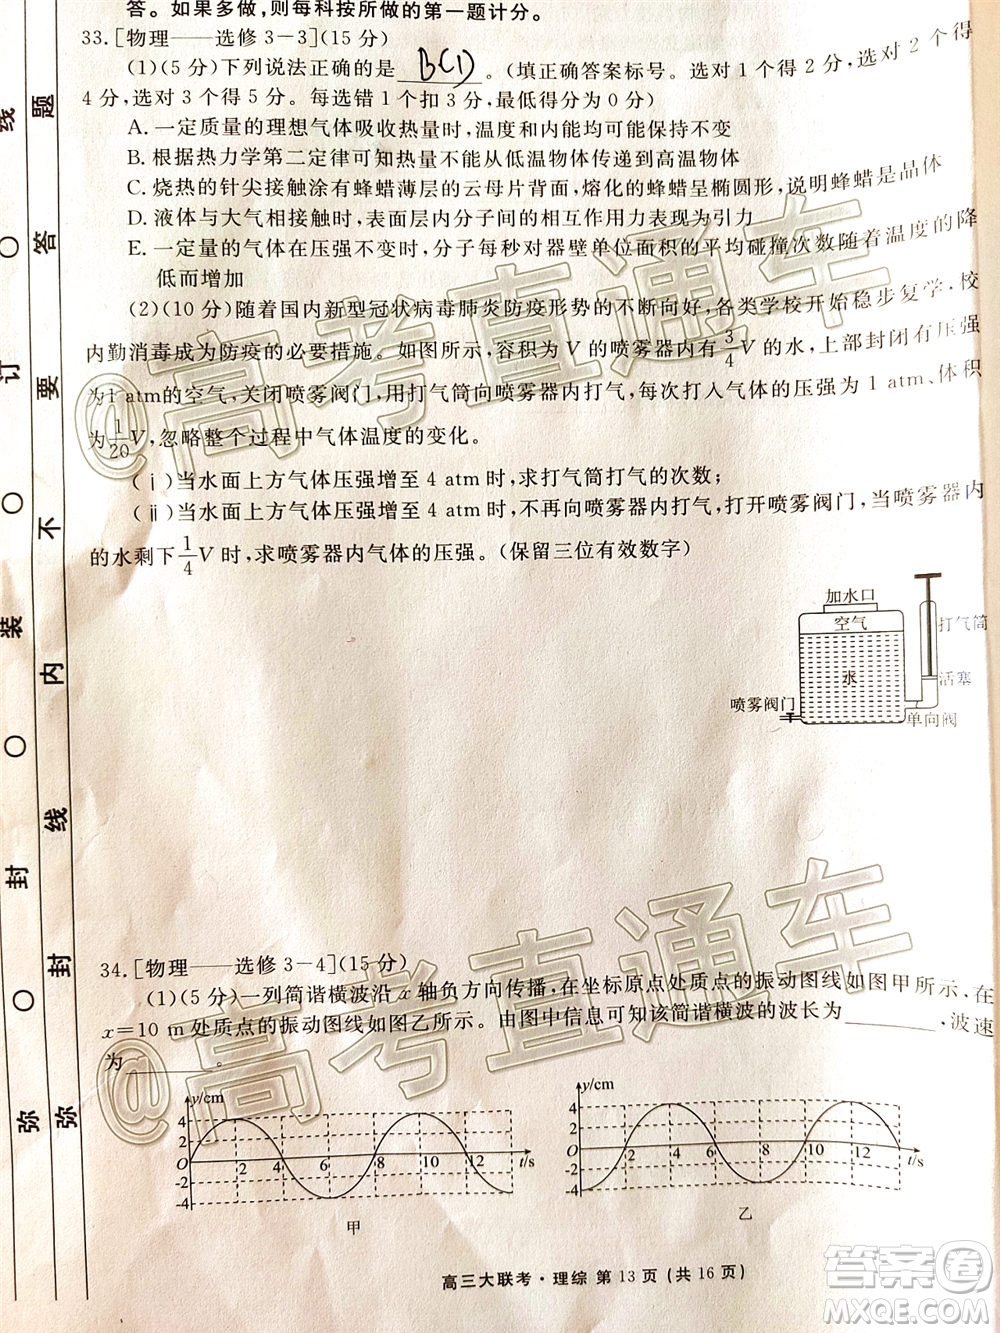 答。如果多做,则每科按所做的第一题计分。
33.[物理——选修3-3](15分)
(1)(5分)下列说法正确的是 。(填正确答案标号。选对1个得2分,选对2个得
4分,选对3个得5分。每选错1个扣3分,最低得分为0分)
A. 一定质量的理想气体吸收热量时,温度和内能均可能保持不变
B. 根据热力学第二定律可知热量不能从低温物体传递到高温物体
C. 烧热的针尖接触涂有蜂蜡薄层的云母片背面,熔化的蜂蜡呈椭圆形,说明蜂蜡是晶体
D. 液体与大气相接触时,表面层内分子间的相互作用力表现为引力
E. 一定量的气体在压强不变时,分子每秒对器壁单位面积的平均碰撞次数随着温度的降
低而增加
(2)(10分)随着国内新型冠状病毒肺炎防疫形势的不断向好,各类学校开始稳步复学,校
内勤消毒成为防疫的必要措施。如图所示,容积为V的喷雾器内有3/4V的水,上部封闭有压强
为1 atm的空气,关闭喷雾阀门,用打气筒向喷雾器内打气,每次打入气体的压强为1 atm、体积
为1/20V,忽略整个过程中气体温度的变化。
(ⅰ)当水面上方气体压强增至4 atm时,求打气筒打气的次数;
(ⅱ)当水面上方气体压强增至4 atm时,不再向喷雾器内打气,打开喷雾阀门,当喷雾器内
的水剩下1/4V时,求喷雾器内气体的压强。(保留三位有效数字)
加水口
空气
打气筒
水
活塞
喷雾阀门
单向阀
34.[物理——选修3-4](15分)
(1)(5分)一列简谐横波沿x轴负方向传播,在坐标原点处质点的振动图线如图甲所示,在
x=10 m处质点的振动图线如图乙所示。由图中信息可知该简谐横波的波长为________,波速
为________。
y/cm
4
2
O
-2
-4
2 4 6 8 10 12 t/s
甲
y/cm
4
2
O
-2
-4
2 4 6 8 10 12 t/s
乙
高三大联考·理综 第13页(共16页)
弥 ○ 封 ○ 装 ○ 订 ○ 线
弥 封 线 内 不 要 答 题
@高考直通车
@高考直通车
答案圈
MXQE.COM